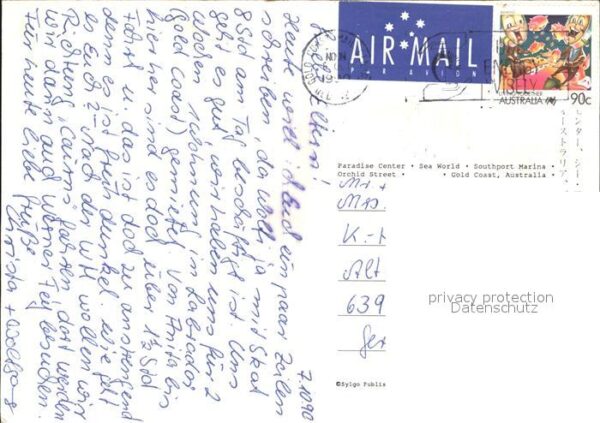 7.10.90
Liebe Eltern!
Heute will ich Euch ein paar Zeilen
schreiben, da Wolfi ja mit Skat
8 Std am Tag beschäftigt ist. Uns
geht es gut, wir haben uns für 2
Wochen Wohnung in Labrador
(Gold Coast) gemietet. Von Anita bis
hier her sind es doch über 1½ Std
Fahrt u. das ist doch zu anstrengend
denn es ist früh dunkel. Wie geht
es Euch? nach den wollen wir
Richtung "Cairns" fahren, dort werden
wir dann auch Werner besuchen.
Für heute liebe Grüße
Christa + Wolfgang
AIR MAIL
PAR AVION
AUSTRALIA 90c
Paradise Center · Sea World · Southport Marina ·
Orchid Street · Gold Coast, Australia ·
Mr +
Mrs.
K.-
Alt
639
Ger
privacy protection
Datenschutz
©Sylgo Publis